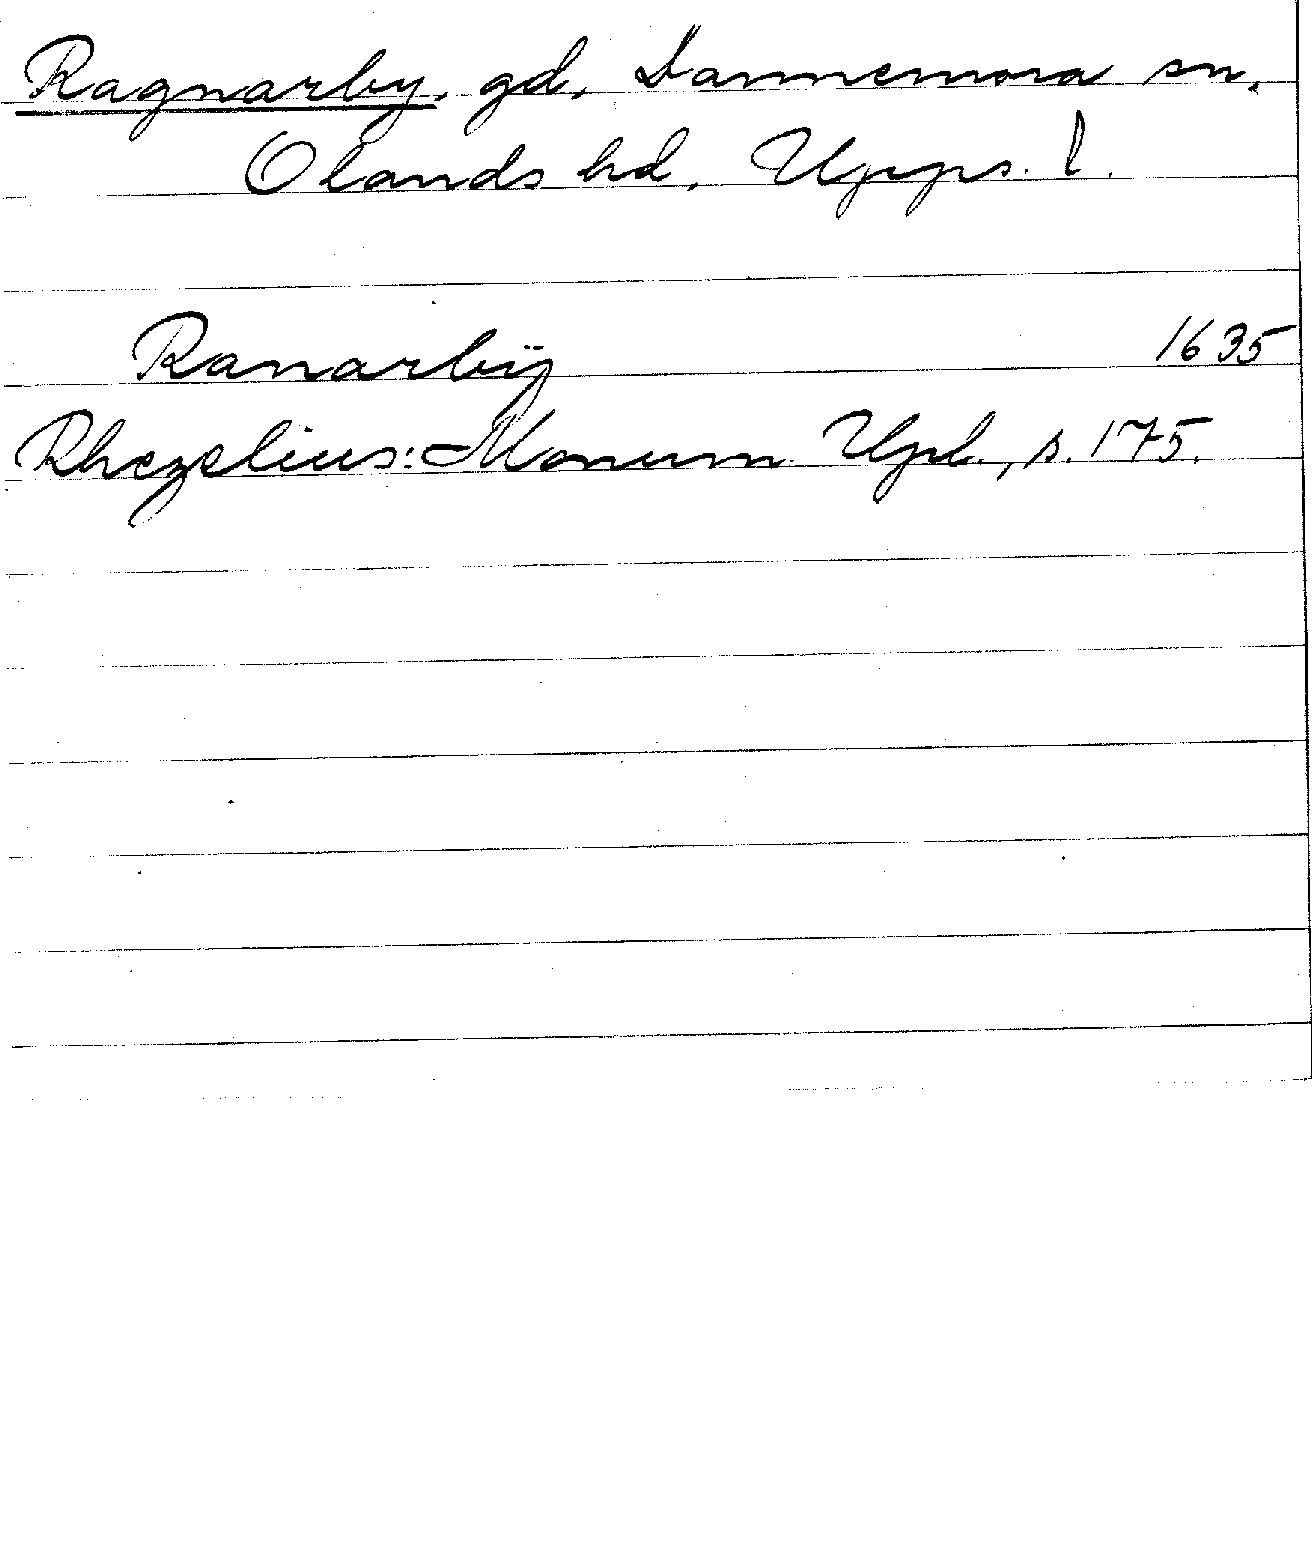 Ragnarby, gd, Dannemora sn,
Olands hd, Upps. l.
Ranarbÿ 1635
Rhezelius: Monum Upl., s. 175.